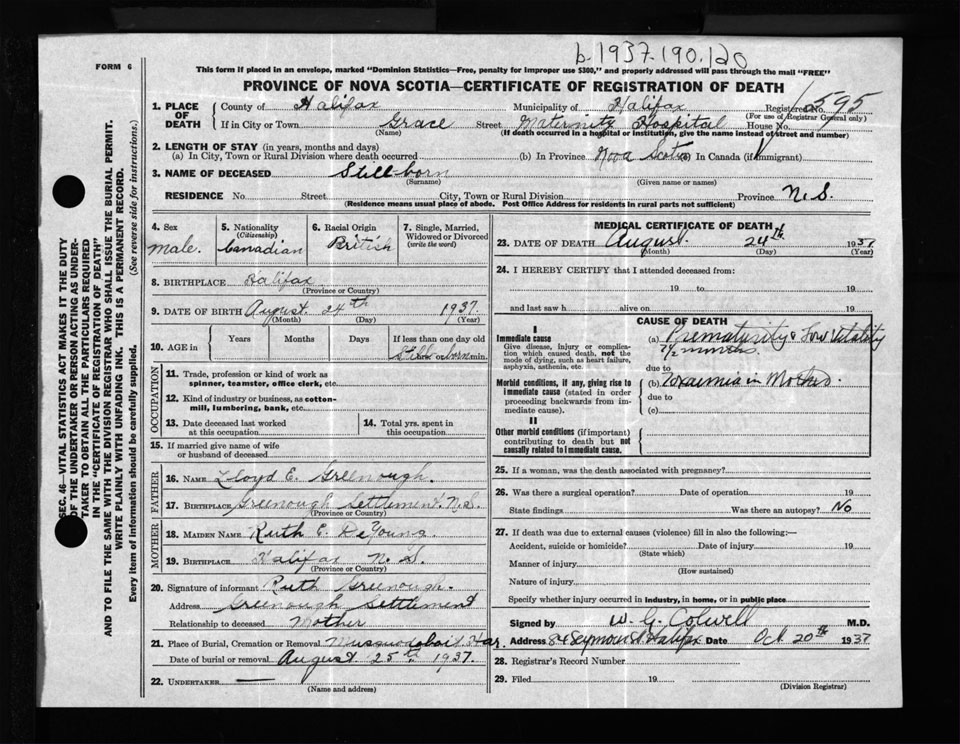 b.1937.190.120
FORM 6
This form if placed in an envelope, marked "Dominion Statistics—Free, penalty for improper use $300," and properly addressed will pass through the mail "FREE"
PROVINCE OF NOVA SCOTIA—CERTIFICATE OF REGISTRATION OF DEATH
SEC. 46—VITAL STATISTICS ACT MAKES IT THE DUTY
OF THE UNDERTAKER OR PERSON ACTING AS UNDER-
TAKER TO OBTAIN ALL THE PARTICULARS REQUIRED
IN THE "CERTIFICATE OF REGISTRATION OF DEATH"
AND TO FILE THE SAME WITH THE DIVISION REGISTRAR WHO SHALL ISSUE THE BURIAL PERMIT.
WRITE PLAINLY WITH UNFADING INK. THIS IS A PERMANENT RECORD.
Every item of information should be carefully supplied. (See reverse side for instructions.)
1. PLACE OF DEATH County of Halifax Municipality of Halifax Registered No. 595
(For use of Registrar General only)
If in City or Town Grace Street Maternity Hospital House No.
(Name) (If death occurred in a hospital or institution, give the name instead of street and number)
2. LENGTH OF STAY (in years, months and days)
(a) In City, Town or Rural Division where death occurred (b) In Province Nova Scotia (c) In Canada (if immigrant)
3. NAME OF DECEASED Still-born
(Surname) (Given name or names)
RESIDENCE No. Street City, Town or Rural Division Province N.S.
(Residence means usual place of abode. Post Office Address for residents in rural parts not sufficient)
4. Sex Male.
5. Nationality (Citizenship) Canadian
6. Racial Origin British
7. Single, Married, Widowed or Divorced (write the word)
8. BIRTHPLACE Halifax
(Province or Country)
9. DATE OF BIRTH August 24th 1937.
(Month) (Day) (Year)
10. AGE in Years Months Days If less than one day
Still born hrs. or min.
OCCUPATION
11. Trade, profession or kind of work as
spinner, teamster, office clerk, etc.
12. Kind of industry or business, as cotton-
mill, lumbering, bank, etc.
13. Date deceased last worked
at this occupation
14. Total yrs. spent in
this occupation
15. If married give name of wife
or husband of deceased
FATHER
16. NAME Lloyd E. Greenough.
17. BIRTHPLACE Greenough Settlement. N.S.
(Province or Country)
MOTHER
18. MAIDEN NAME Ruth E. DeYoung.
19. BIRTHPLACE Halifax N. S.
(Province or Country)
20. Signature of informant Ruth Greenough.
Address Greenough Settlement
Relationship to deceased Mother
21. Place of Burial, Cremation or Removal Musquodoboit Har.
Date of burial or removal August 25th 1937.
22. UNDERTAKER —
(Name and address)
MEDICAL CERTIFICATE OF DEATH
23. DATE OF DEATH August. 24th 1937
(Month) (Day) (Year)
24. I HEREBY CERTIFY that I attended deceased from:
19 to 19
and last saw h alive on 19
CAUSE OF DEATH
I
Immediate cause
Give disease, injury or complica-
tion which caused death, not the
mode of dying, such as heart failure,
asphyxia, asthenia, etc.
(a) Prematurity & Low Vitality
7½ months.
due to
Morbid conditions, if any, giving rise to
immediate cause (stated in order
proceeding backwards from im-
mediate cause).
(b) Toxaemia in Mother.
due to
(c)
II
Other morbid conditions (if important)
contributing to death but not
causally related to immediate cause.
25. If a woman, was the death associated with pregnancy?
26. Was there a surgical operation? Date of operation 19
State findings Was there an autopsy? No
27. If death was due to external causes (violence) fill in also the following:—
Accident, suicide or homicide? Date of injury 19
(State which)
Manner of injury
(How sustained)
Nature of injury
Specify whether injury occurred in industry, in home, or in public place
Signed by W. G. Colwell M.D.
Address 84 Seymour St Halifax Date Oct. 20th 1937
28. Registrar's Record Number
29. Filed 19
(Division Registrar)